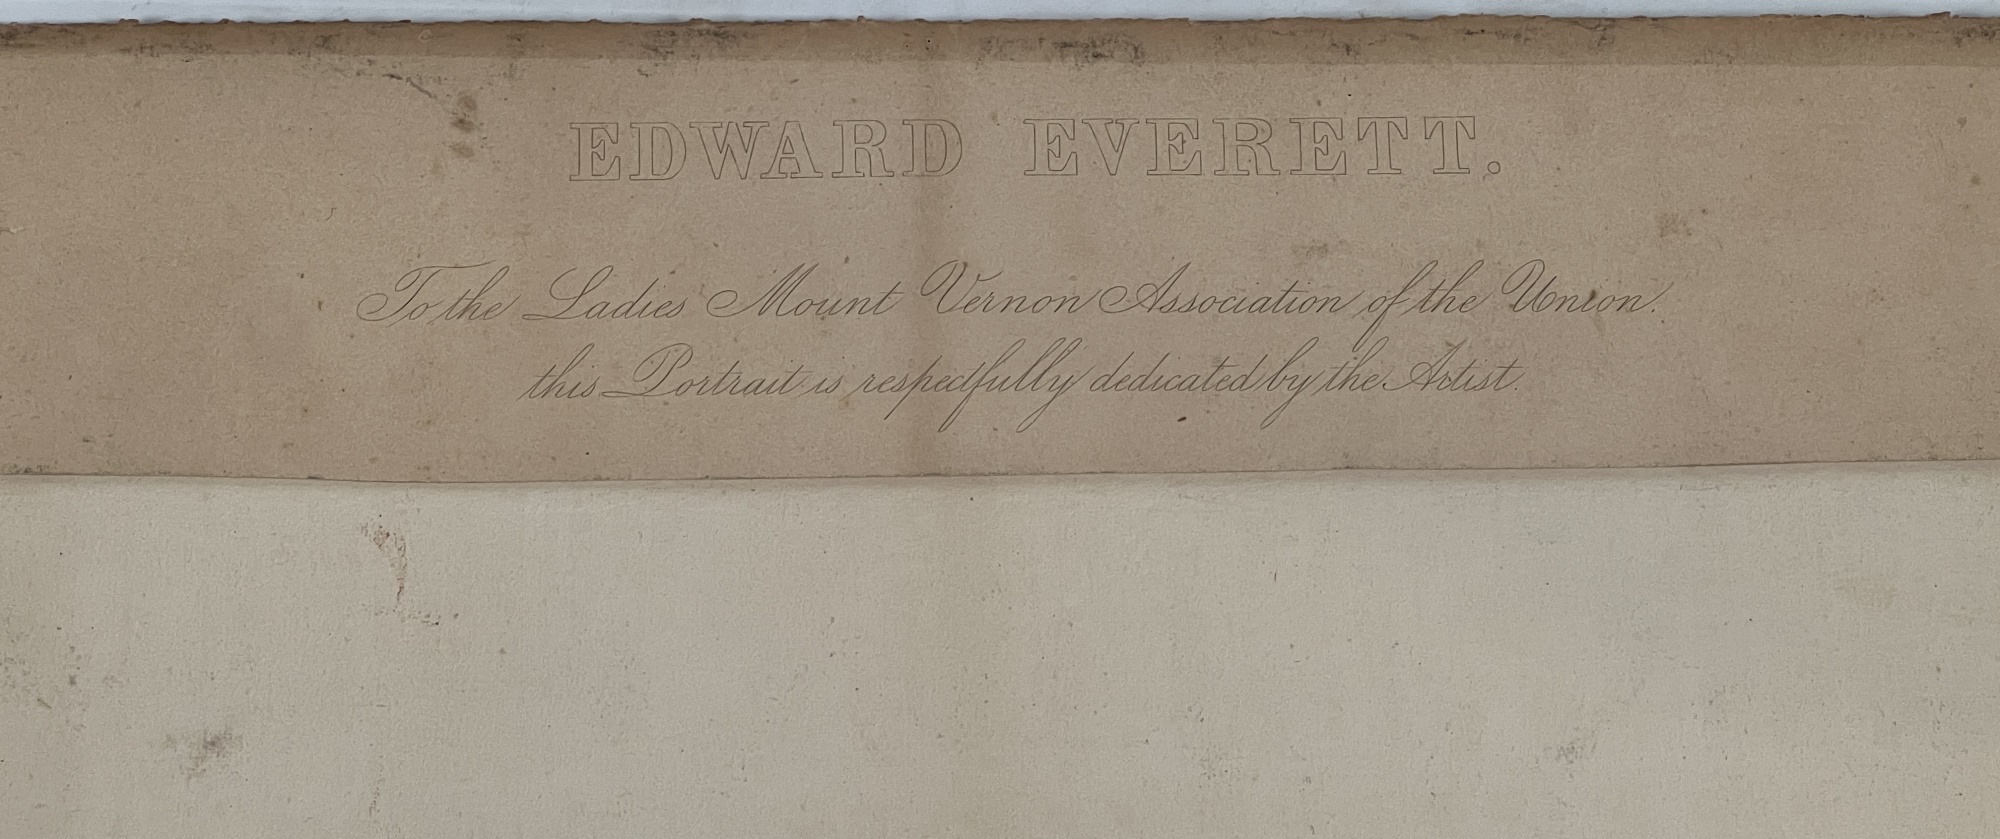 EDWARD EVERETT.
To the Ladies Mount Vernon Association of the Union.
this Portrait is respectfully dedicated by the Artist.